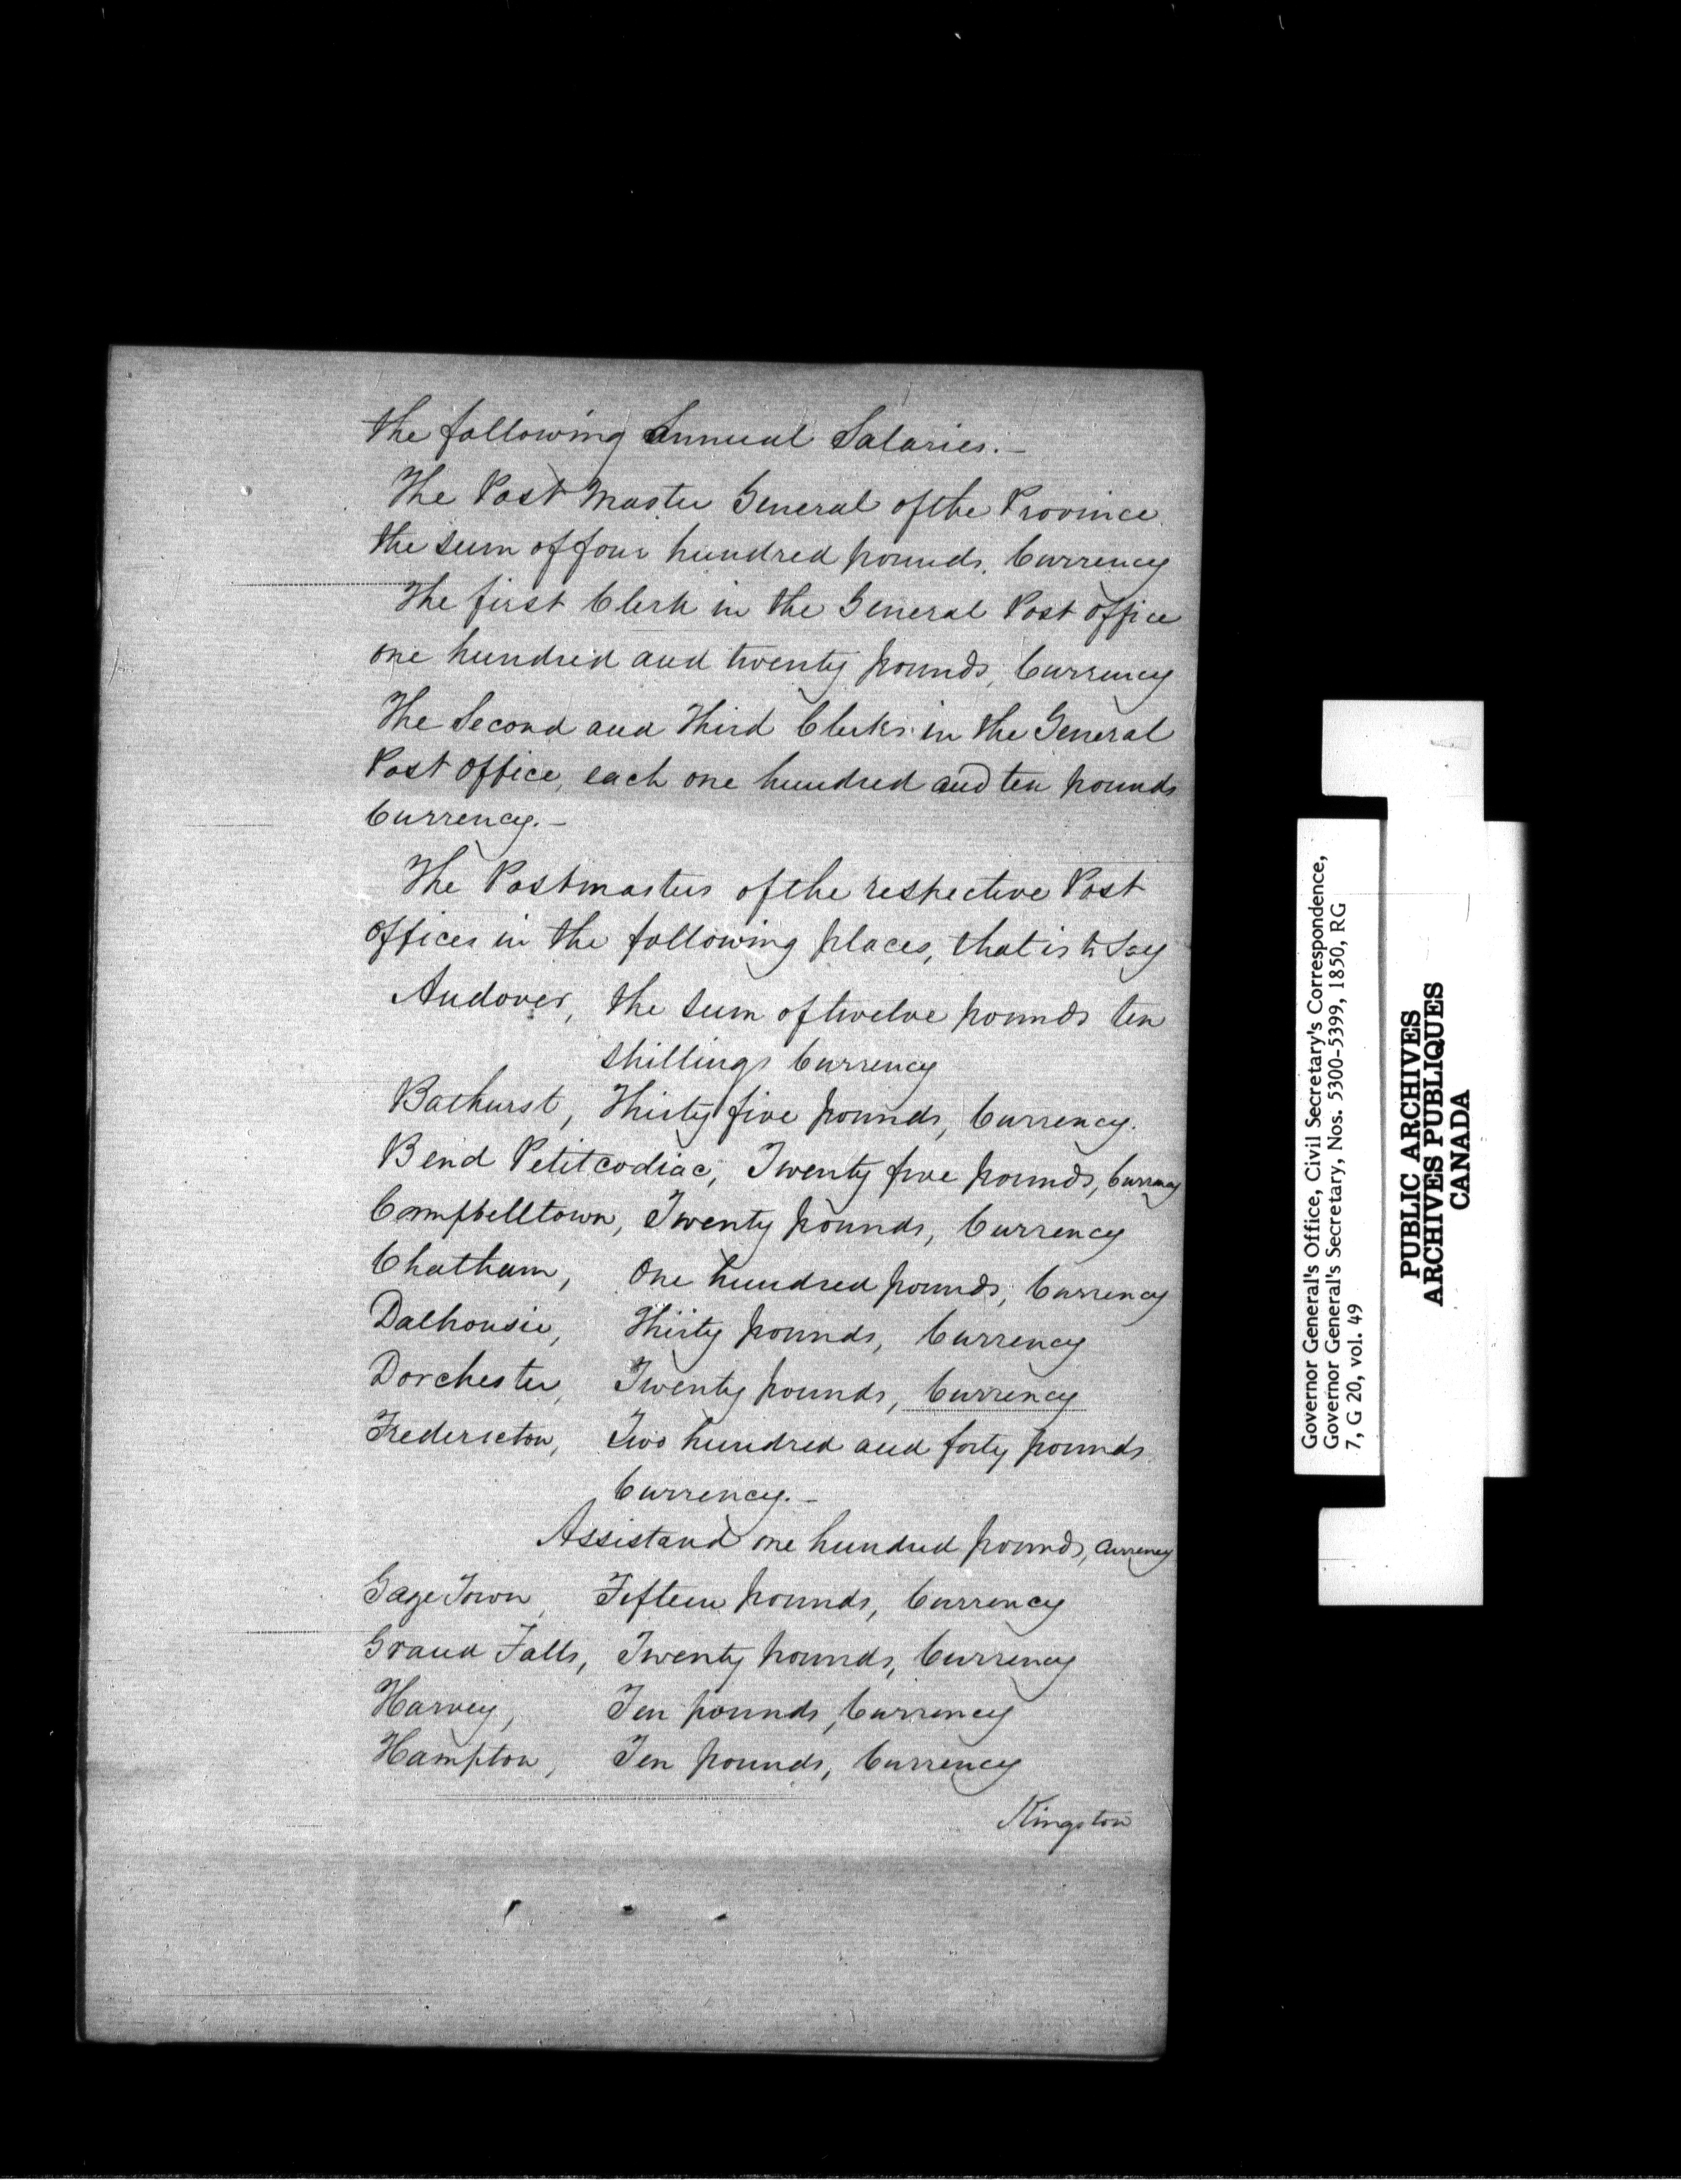 the following Annual Salaries.—
The Post Master General of the Province
the sum of four hundred pounds. Currency
The first Clerk in the General Post Office
one hundred and twenty pounds, Currency
The Second and Third Clerks in the General
Post Office, each one hundred and ten pounds
Currency.—
The Postmasters of the respective Post
Offices in the following places, that is to Say
Andover, the sum of twelve pounds ten
shillings Currency
Bathurst, Thirty five pounds, Currency.
Bend Petitcodiac, Twenty five pounds, Currency
Campbelltown, Twenty pounds, Currency
Chatham, One hundred pounds, Currency
Dalhousie, Thirty pounds, Currency
Dorchester, Twenty pounds, Currency
Fredericton, Two hundred and forty pounds
Currency.—
Assistant one hundred pounds, Currency
Gage Town, Fifteen pounds, Currency
Grand Falls, Twenty pounds, Currency
Harvey, Ten pounds, Currency
Hampton, Ten pounds, Currency
Kingston
Governor General's Office, Civil Secretary's Correspondence,
Governor General's Secretary, Nos. 5300-5399, 1850, RG
7, G 20, vol. 49
PUBLIC ARCHIVES
ARCHIVES PUBLIQUES
CANADA